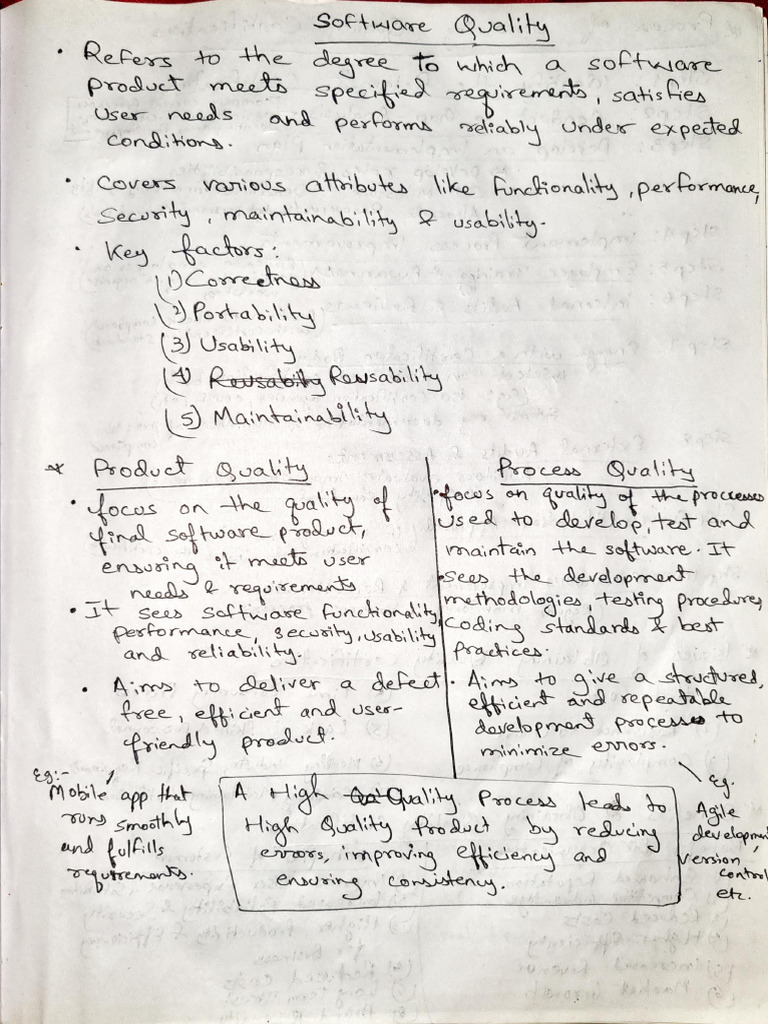 Software Quality
• Refers to the degree to which a software
product meets specified requirements, satisfies
user needs and performs reliably under expected
conditions.
• Covers various attributes like functionality, performance,
Security, maintainability & usability.
• Key factors:
(1) Correctness
(2) Portability
(3) Usability
(4) Reusability Reusability
(5) Maintainability
* Product Quality
• focus on the quality of
final software product,
ensuring it meets user
needs & requirements
• It sees software functionality,
performance, security, usability
and reliability.
• Aims to deliver a defect
free, efficient and user-
friendly product.
Eg:-
Mobile app that
runs smoothly
and fulfills
requirements.
Process Quality
• focus on quality of the processes
used to develop, test and
maintain the software. It
• sees the development
methodologies, testing procedures,
coding standards & best
practices.
• Aims to give a structured,
efficient and repeatable
development process to
minimize errors.
Eg.
Agile
development,
version
control
etc.
A High Quality Process leads to
High Quality Product by reducing
errors, improving efficiency and
ensuring consistency.